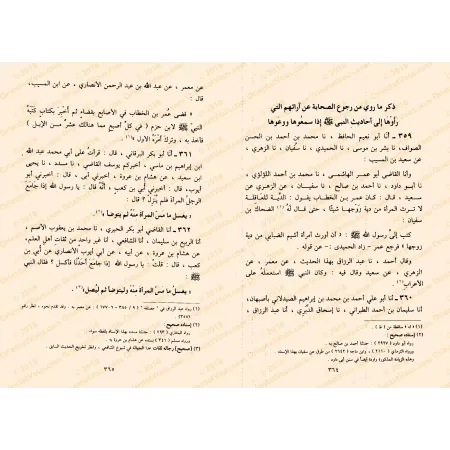 ذكر ما روي من رجوع الصحابة عن آرائهم التي
رأوها إلى أحاديث النبي ﷺ إذا سمعوها ووعوها
٣٥٩ ـ أنا أبو نعيم الحافظ ، نا محمد بن أحمد بن الحسن
الصواف، نا بشر بن موسى ، نا الحميدي ، نا سفيان ، نا الزهري ،
عن سعيد بن المسيب :
وأنا القاضي أبو عمر الهاشمي ، نا محمد بن أحمد اللؤلؤي ،
نا أبو داود ، نا أحمد بن صالح ، نا سفيان ، عن الزهري عن
سعيد ، قال : كان عمر بن الخطاب يقول : الدية للعاقلة
لا ترث المرأة من دية زوجها شيئا ، حتى قال له الضحاك بن
سفيان :
كتب إلي رسول الله ﷺ : « أن أورث امرأة أشيم الضبابي من دية
زوجها » فرجع عمر ـ زاد الحميدي : ـ عن قوله .
وقال أحمد ، نا عبد الرزاق بهذا الحديث ، عن معمر ، عن
الزهري ، عن سعيد وقال فيه : وكان النبي ﷺ استعمله على
الأعراب
٣٦٠ ـ أنا أبو علي أحمد بن محمد بن إبراهيم الصيدلاني بأصبهان،
أنا سليمان بن أحمد الطبراني ، نا إسحاق الدبري ، أنا عبد الرزاق ،
(٢) إسناده صحيح
رواه أبو داود ( ٢٩٢٧ ) : حدثنا أحمد بن صالح به .
ورواه الترمذي ( ٢١١٠ ) ، وابن ماجه ( ٢٦٤٢ ) من طرق عن سفيان بهذا الإسناد .
٣٦٤
عن معمر ، عن عبد الله بن عبد الرحمن الأنصاري ، عن ابن المسيب،
قال :
« قضى عمر بن الخطاب في الأصابع بقضاء ثم أخبر بكتاب كتبه
النبي ﷺ لابن حزم ( في كل أصبع مما هنالك عشر من الإبل )
فأخذ به ، وترك أمره الأول
٣٦١ ـ أنا أبو بكر البرقاني ، قال : قرأت على أبي محمد عبد الله
ابن إبراهيم بن ماسي ، أخبركم يوسف القاضي ، نا مسدد ، نا يحيى
ابن سعيد ، عن هشام بن عروة ، أخبرني أبي ، قال : أخبرني أبو
أيوب، قال : أخبرني أبي بن كعب ، أنه قال : يا رسول الله إذا جامع
الرجل المرأة فلم ينزل ؟ قال :
« يغسل ما مس المرأة منه ثم يتوضأ »
٣٦٢ ـ أنا القاضي أبو بكر الحيري ، نا محمد بن يعقوب الأصم ،
أنا الربيع بن سليمان ، أنا الشافعي ، أنا غير واحد من ثقات أهل العلم،
عن هشام بن عروة ، عن أبيه ، عن أبي أيوب الأنصاري عن أبي بن
كعب ، قال : قلت : يا رسول الله إذا جامع أحدنا فأكسل ؟ فقال النبي
ﷺ :
« يغسل ما مس المرأة منه وليتوضأ ثم ليصل »
(٢) إسناده صحيح
رواه البخاري ( ٢٩٣ ) : حدثنا مسدد بهذا الإسناد بلفظه سواء .
ورواه مسلم ( ٣٤٦ ) من طرق عن هشام بن عروة به .
٣٦٥